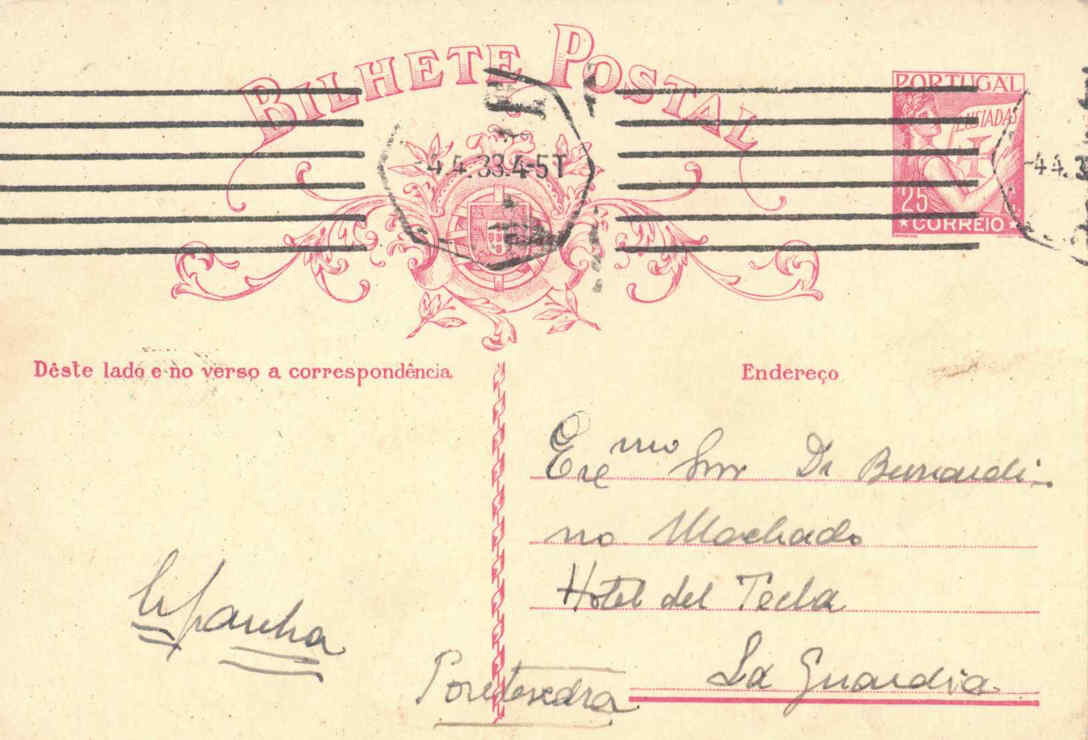 BILHETE POSTAL
PORTUGAL
LUSIADAS
25
CORREIO
-4.4.33.4-5T
-4.4.3
Dêste lado e no verso a correspondência
Endereço
Exe mo Snr Dr Bernardi-
no Machado
Hotel del Tecla
La Guardia
Pontevedra
Espanha